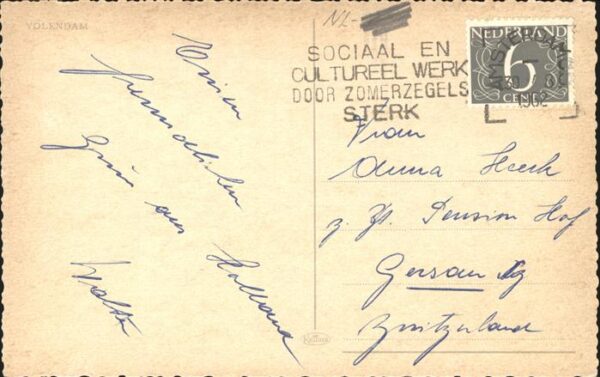 VOLENDAM
NL-
SOCIAAL EN
CULTUREEL WERK
DOOR ZOMERZEGELS
STERK
AMSTERDAM
1962
NEDERLAND
6
CENT
Einen
freundlichen
Gruss aus Holland
Walter
Frau
Anna Heerk
z. Zt. Pension Hof
Gersau
Switzerland